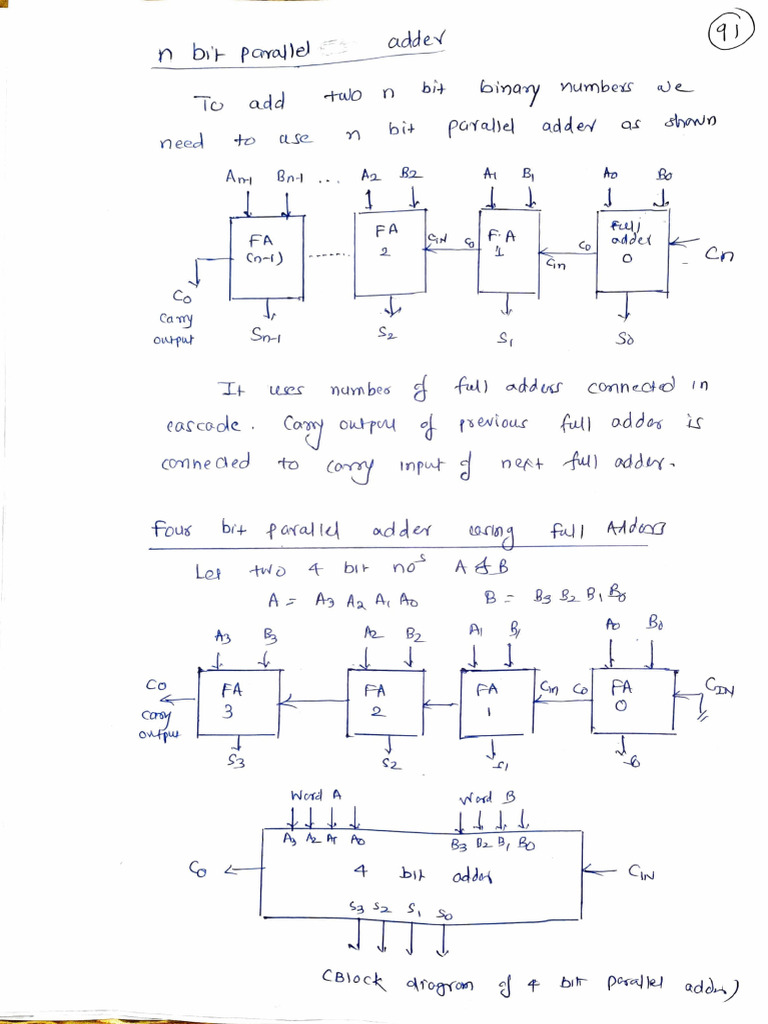 91
n bit parallel adder
To add two n bit binary numbers we
need to use n bit parallel adder as shown
An-1 Bn-1 ... A2 B2 A1 B1 A0 B0
FA (n-1) ...... FA 2 CIN Co F.A 1 Cin Co Full adder 0 Cn
Co
carry
output
Sn-1 S2 S1 S0
It uses number of full adders connected in
cascade. Carry output of previous full adder is
connected to carry input of next full adder.
Four bit parallel adder using full Adders
Let two 4 bit nos A & B
A = A3 A2 A1 A0 B = B3 B2 B1 B0
A3 B3 A2 B2 A1 B1 A0 B0
Co FA 3 FA 2 FA 1 Cin Co FA 0 CIN
carry
output
S3 S2 S1
Word A Word B
A3 A2 A1 A0 B3 B2 B1 B0
Co 4 bit adder CIN
S3 S2 S1 S0
(Block diagram of 4 bit parallel adder)